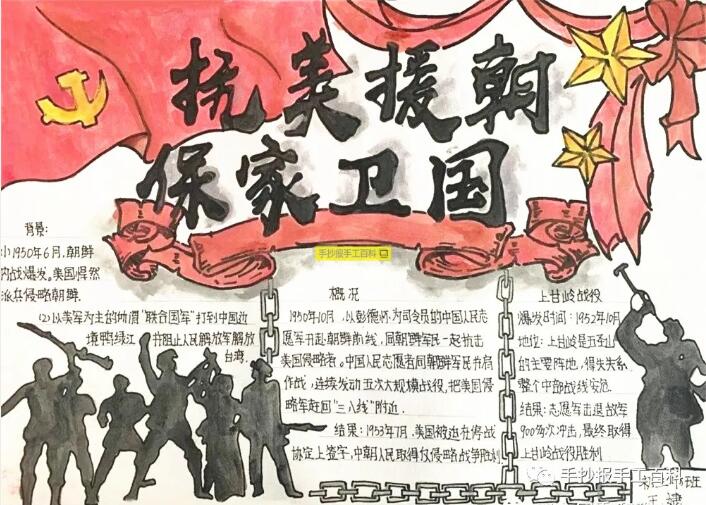 抗美援朝
保家卫国
手抄报手工百科
背景:
(1)1950年6月,朝鲜
内战爆发。美国悍然
派兵侵略朝鲜.
(2)以美军为主的所谓“联合国军”打到中国边
境鸭绿江
并阻止人民解放军解放
台湾.
概况
1950年10月,以彭德怀为司令员的中国人民志
愿军开赴朝鲜前线,同朝鲜军民一起抗击
美国侵略者。中国人民志愿者同朝鲜军民并肩
作战,连续发动五次大规模战役,把美国侵
略军赶回“三八线”附近.
结果:1953年7月,美国被迫在停战
协定上签字,中朝人民取得反侵略战争胜利.
上甘岭战役
爆发时间:1952年10月
地位:上甘岭是五圣山
的主要阵地,得失关系
整个中部战线安危.
结果:志愿军击退敌军
900多次冲击,最终取得
上甘岭战役胜利
班
王
手抄报手工百科